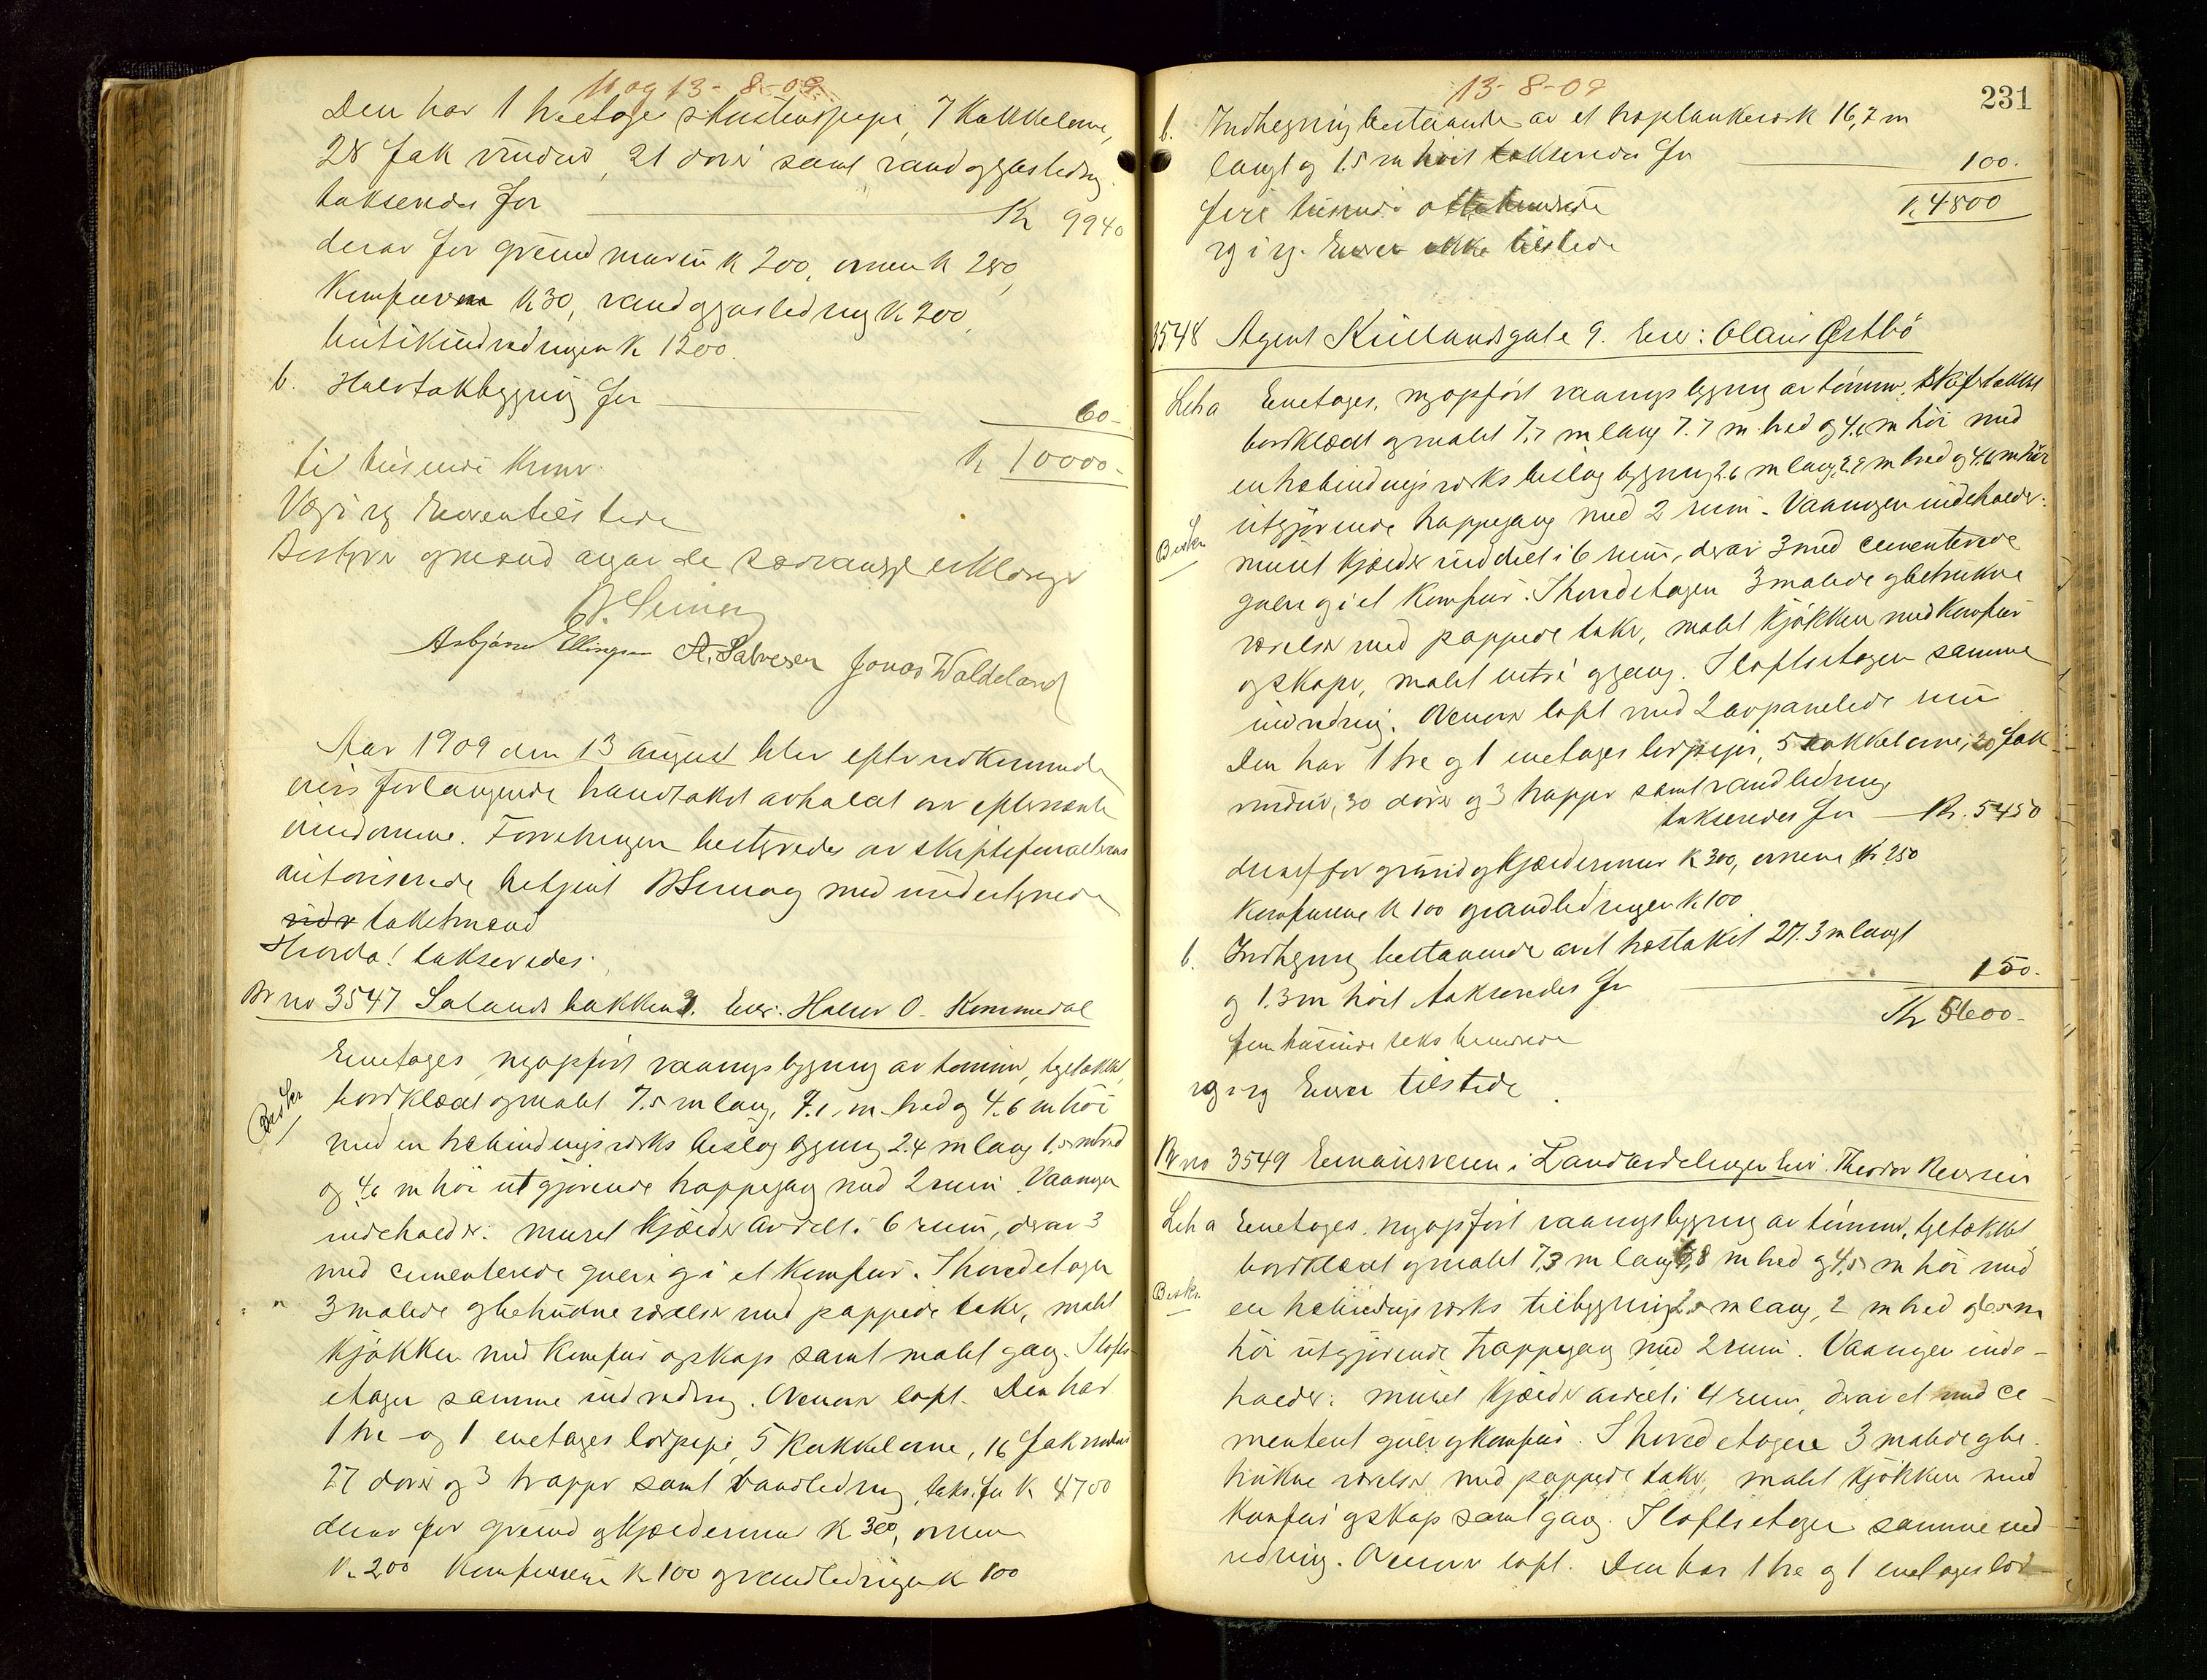 11 og 13-8-09
Den har 1 treetages skorstenspipe, 7 kakkelovne,
28 fak vinduer, 21 dører samt vand og gasledning
takseredes for Kr 9940
derav for grundmuren K 200, ovnene K 280,
Komfuren K 30, vand og gasledning K 200,
butikindredningen K 1200.
b. Halvtakbygning for 60.-
ti tusinde kroner. K 10000.-
rg i rg Eieren tilstede
Bestyrer og mænd avgav de særvanlige erklæringer
Asbjørn Ellingsen A. Salvesen Jonas Waldeland
Aar 1909 den 13 august blev efter vedkommende
eiers forlangende brandtakst avholdt over efternævnte
eiendomme. Forretningen bestyredes av skiftefuldmægtigens
autoriserede betjent med undertegnede
takstmænd
Hvorda! takseredes:
Br no 3547 Solands bakken 9. Eier: Halvor O. Kommedal
Beskr. Enetages, nyopført vaaningsbygning av tømmer, tegltækket,
bordklædt og malet 7.5 m lang, 7.1 m bred og 4.6 m høi
med en træbindingsverks beslag bygning 2.4 m lang 1.5 m bred
og 4.6 m høi utgjørende trappegang med 2 rum. Vaaningen
indeholder: muret kjælder avdelt i 6 rum, derav 3
med cementerede gulve og i et komfur. I hovedetagen
3 malede og betrukne værelser med pappede taker, malet
kjøkken med komfur og skap samt malet gang. I lofts-
etagen samme indredning. Ovenover loft. Den har
1 tre- og 1 enetages lerpipe, 5 kakkelovne, 16 fak vinduer
27 dører og 3 trapper samt vandledning, taks. for K 4700
derav for grund og kjældermur K 300, ovnene
K. 200 komfurene K 100 og vandledningen K 100
13-8-09
231
b. Indhegning bestaaende av et træplankeverk 16,7 m
langt og 1.5 m høit takseredes for 100.-
fire tusinde ottehundrede K. 4800
rg i rg. Eieren ikke tilstede
3548 Agent Kiellandsgate 9. Eier: Olaus Østbø
Litr a Enetages, nyopført vaaningsbygning av tømmer, skifertækket
bordklædt og malet 7.7 m lang 7.7 m bred og 4.6 m høi med
en træbindingsverks beslag bygning 2.6 m lang, 2.9 m bred og 4.6 m høi
utgjørende trappegang med 2 rum. Vaaningen indeholder:
Beskr. muret kjælder inddelt i 6 rum, derav 3 med cementerede
gulve og i et komfur. I hovedetagen 3 malede og betrukne
værelser med pappede taker, malet kjøkken med komfur
og skaper, malet entre og gang. I loftsetagen samme
indredning. Ovenover loft med 2 avpanelede rum
Den har 1 tre og 1 enetages lerpiper, 5 kakkelovne, 20 fak
vinduer, 30 dører og 3 trapper samt vandledning
takseredes for Kr. 5450
derav for grund og kjældermur K 300, ovnene Kr 250
komfurene K 100 og vandledningen K 100
b. Indhegning bestaaende av et træstakit 27.3 m langt
og 1.3 m høit takseredes for 150.-
fem tusinde seks hundrede Kr 5600.-
rg i rg Eieren tilstede
Br no 3549 Emausveien i Landavdelingen Eier: Theodor
Litr a Enetages, nyopført vaaningsbygning av tømmer, tegltækket
bordklædt og malet 7,3 m lang 6,8 m bred og 4,5 m høi med
Beskr. en træbindingsverks tilbygning m lang, 2 m bred og m
høi utgjørende trappegang med 2 rum. Vaaningen inde-
holder: muret kjælder avdelt i 4 rum, derav et med ce-
menteret gulv og komfur. I hovedetagen 3 malede og be-
trukne værelser med pappede taker, malet kjøkken med
komfur og skap samt gang. I loftsetagen samme ind-
redning. Ovenover loft. Den har 1 tre og 1 enetages ler-